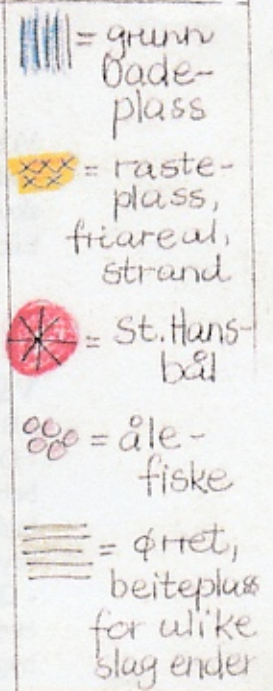 = grunn
bade-
plass
= raste-
plass,
friareal,
strand
= St.Hans-
bål
= åle-
fiske
= ørret,
beiteplass
for ulike
slag ender